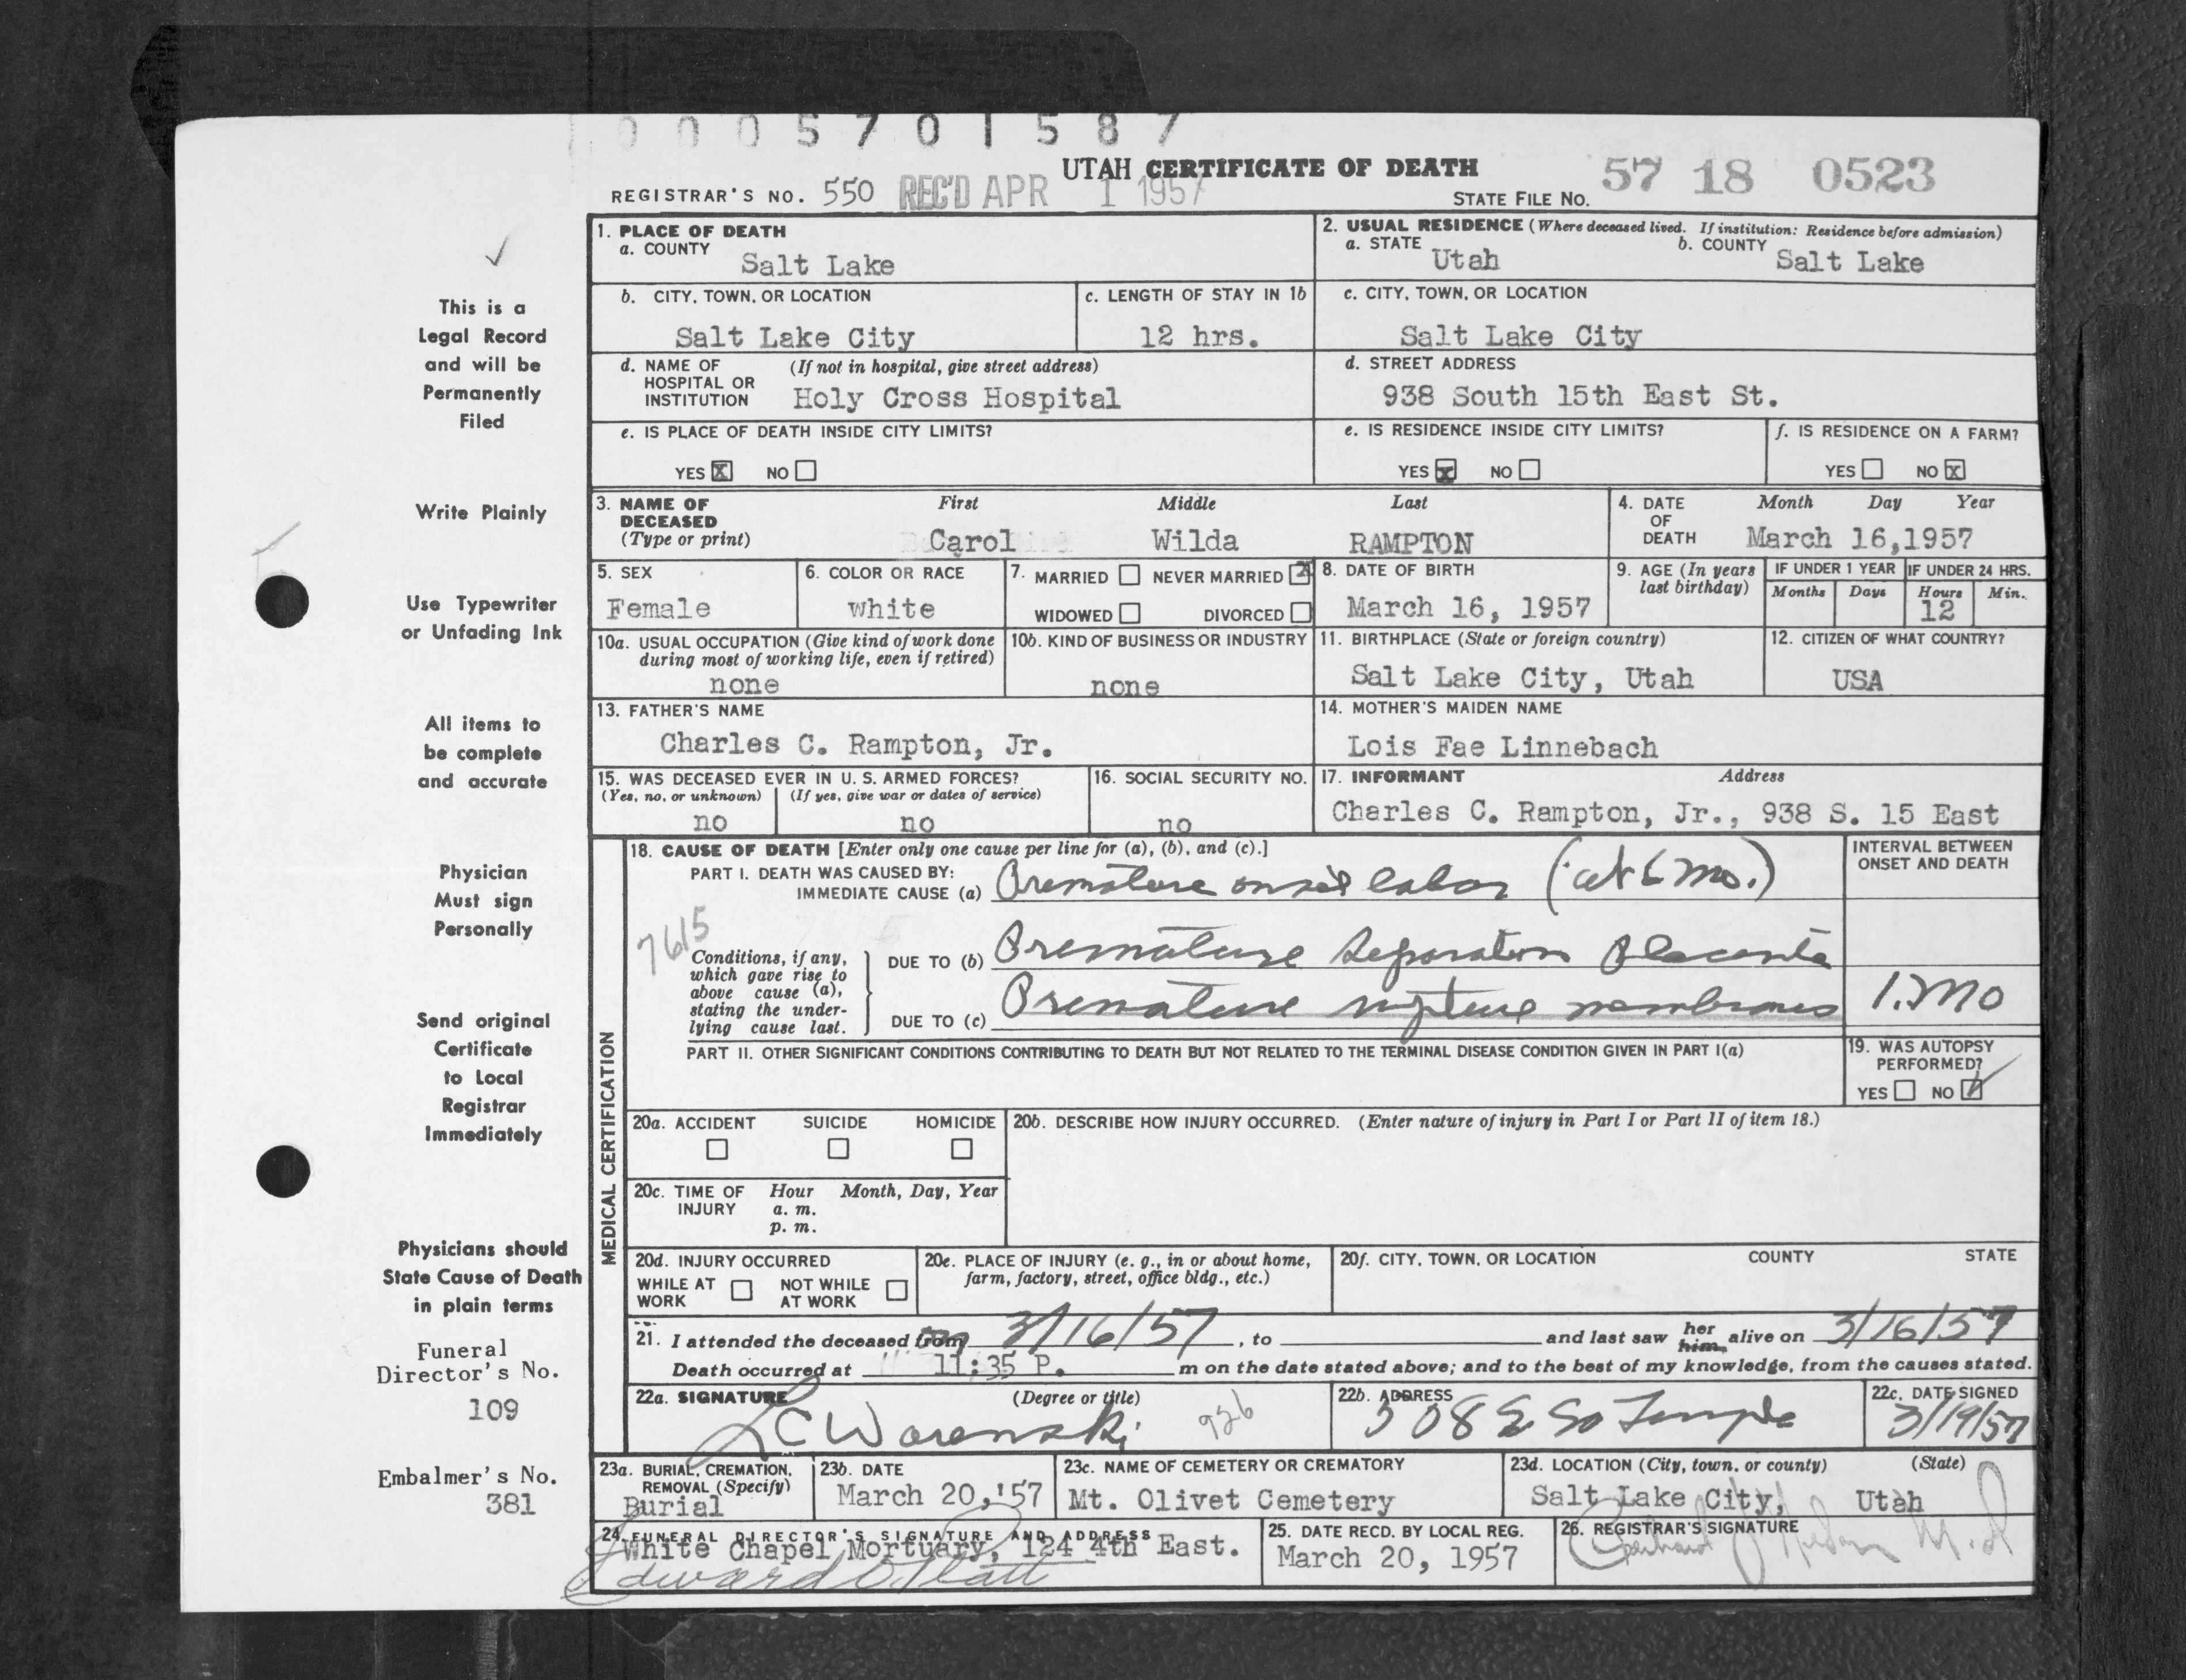 0005701587
UTAH CERTIFICATE OF DEATH
REGISTRAR'S NO. 550 REC'D APR 1 1957 STATE FILE NO. 57 18 0523
1. PLACE OF DEATH
a. COUNTY
Salt Lake
2. USUAL RESIDENCE (Where deceased lived. If institution: Residence before admission)
a. STATE Utah b. COUNTY Salt Lake
b. CITY, TOWN, OR LOCATION
Salt Lake City
c. LENGTH OF STAY IN 1b
12 hrs.
c. CITY, TOWN, OR LOCATION
Salt Lake City
d. NAME OF HOSPITAL OR INSTITUTION (If not in hospital, give street address)
Holy Cross Hospital
d. STREET ADDRESS
938 South 15th East St.
e. IS PLACE OF DEATH INSIDE CITY LIMITS?
YES X NO
e. IS RESIDENCE INSIDE CITY LIMITS?
YES X NO
f. IS RESIDENCE ON A FARM?
YES NO X
3. NAME OF DECEASED (Type or print)
First Middle Last
Carol Wilda RAMPTON
4. DATE OF DEATH Month Day Year
March 16,1957
5. SEX
Female
6. COLOR OR RACE
white
7. MARRIED NEVER MARRIED X
WIDOWED DIVORCED
8. DATE OF BIRTH
March 16, 1957
9. AGE (In years last birthday)
IF UNDER 1 YEAR
Months Days
IF UNDER 24 HRS.
Hours Min.
12
10a. USUAL OCCUPATION (Give kind of work done during most of working life, even if retired)
none
10b. KIND OF BUSINESS OR INDUSTRY
none
11. BIRTHPLACE (State or foreign country)
Salt Lake City, Utah
12. CITIZEN OF WHAT COUNTRY?
USA
13. FATHER'S NAME
Charles C. Rampton, Jr.
14. MOTHER'S MAIDEN NAME
Lois Fae Linnebach
15. WAS DECEASED EVER IN U. S. ARMED FORCES?
(Yes, no, or unknown) (If yes, give war or dates of service)
no no
16. SOCIAL SECURITY NO.
no
17. INFORMANT Address
Charles C. Rampton, Jr., 938 S. 15 East
MEDICAL CERTIFICATION
18. CAUSE OF DEATH [Enter only one cause per line for (a), (b), and (c).]
PART I. DEATH WAS CAUSED BY:
IMMEDIATE CAUSE (a) Premature onset labor (at 6 mo.)
7615
Conditions, if any, which gave rise to above cause (a), stating the underlying cause last.
DUE TO (b) Premature Separation Placenta
DUE TO (c) Premature rupture membranes
INTERVAL BETWEEN ONSET AND DEATH
1. mo
PART II. OTHER SIGNIFICANT CONDITIONS CONTRIBUTING TO DEATH BUT NOT RELATED TO THE TERMINAL DISEASE CONDITION GIVEN IN PART I(a)
19. WAS AUTOPSY PERFORMED?
YES NO
20a. ACCIDENT SUICIDE HOMICIDE
20b. DESCRIBE HOW INJURY OCCURRED. (Enter nature of injury in Part I or Part II of item 18.)
20c. TIME OF INJURY Hour Month, Day, Year
a. m.
p. m.
20d. INJURY OCCURRED
WHILE AT WORK NOT WHILE AT WORK
20e. PLACE OF INJURY (e. g., in or about home, farm, factory, street, office bldg., etc.)
20f. CITY, TOWN, OR LOCATION COUNTY STATE
21. I attended the deceased from 3/16/57, to and last saw her him alive on 3/16/57
Death occurred at 11:35 P. m on the date stated above; and to the best of my knowledge, from the causes stated.
22a. SIGNATURE (Degree or title)
L C Warenski 926
22b. ADDRESS
508 E So Temple
22c. DATE SIGNED
3/19/57
23a. BURIAL, CREMATION, REMOVAL (Specify)
Burial
23b. DATE
March 20,'57
23c. NAME OF CEMETERY OR CREMATORY
Mt. Olivet Cemetery
23d. LOCATION (City, town, or county) (State)
Salt Lake City, Utah
24. FUNERAL DIRECTOR'S SIGNATURE AND ADDRESS
White Chapel Mortuary, 124 4th East.
Edward
25. DATE RECD. BY LOCAL REG.
March 20, 1957
26. REGISTRAR'S SIGNATURE
M.D
This is a
Legal Record
and will be
Permanently
Filed
Write Plainly
Use Typewriter
or Unfading Ink
All items to
be complete
and accurate
Physician
Must sign
Personally
Send original
Certificate
to Local
Registrar
Immediately
Physicians should
State Cause of Death
in plain terms
Funeral
Director's No.
109
Embalmer's No.
381